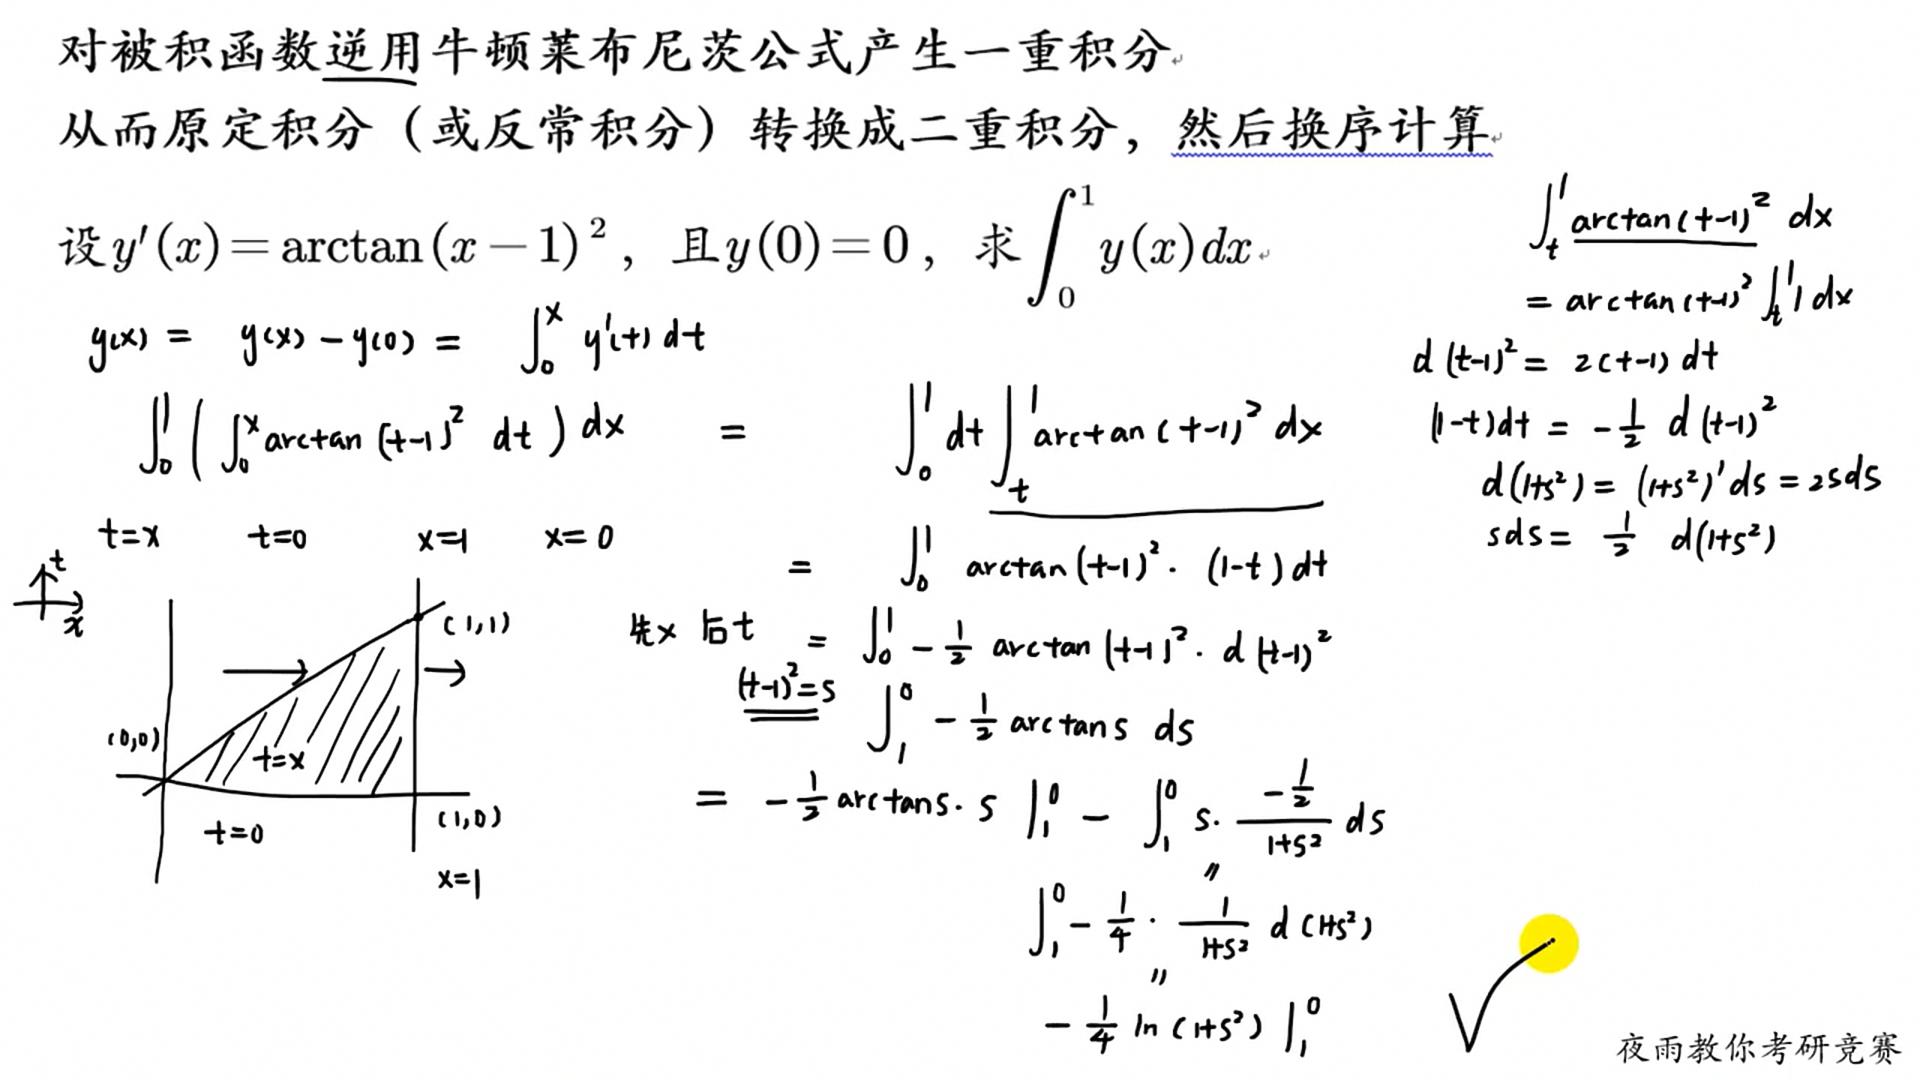 对被积函数逆用牛顿莱布尼茨公式产生一重积分
从而原定积分（或反常积分）转换成二重积分，然后换序计算
设y′(x)=arctan(x−1)²，且y(0)=0，求∫₀¹y(x)dx
y(x) = y(x) − y(0) = ∫₀ˣ y′(t) dt
∫₀¹ ( ∫₀ˣ arctan (t−1)² dt ) dx = ∫₀¹ dt ∫ₜ¹ arctan (t−1)² dx
t=x t=0 x=1 x=0
= ∫₀¹ arctan (t−1)² · (1−t) dt
先x 后t = ∫₀¹ −1/2 arctan (t−1)² · d (t−1)²
(t−1)²=s ∫₁⁰ −1/2 arctan s ds
= −1/2 arctan s · s |₁⁰ − ∫₁⁰ s · (−1/2)/(1+s²) ds
〃
∫₁⁰ −1/4 · 1/(1+s²) d (1+s²)
〃
−1/4 ln (1+s²) |₁⁰
t
x
(1,1)
(0,0)
t=x
t=0
(1,0)
x=1
∫ₜ¹ arctan (t−1)² dx
= arctan (t−1)² ∫ₜ¹ 1 dx
d (t−1)² = 2(t−1) dt
(1−t)dt = −1/2 d (t−1)²
d(1+s²) = (1+s²)′ds = 2sds
sds = 1/2 d(1+s²)
夜雨教你考研竞赛